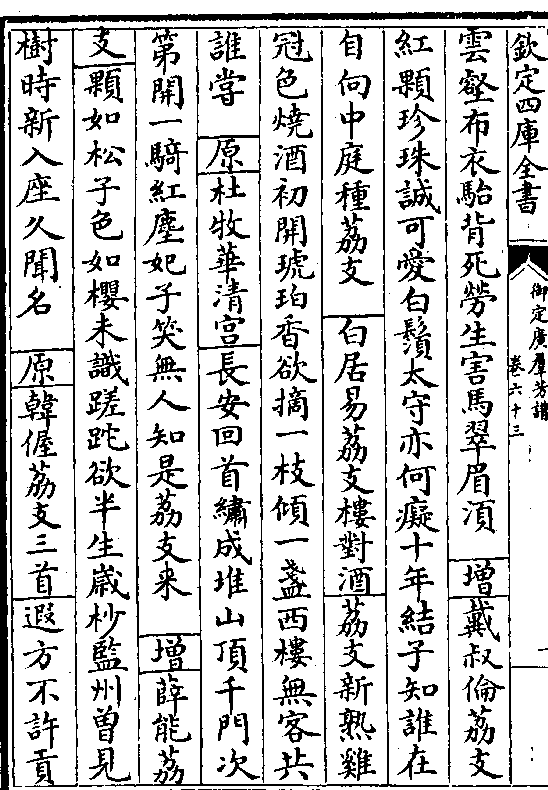 欽定四庫全書
御定廣羣芳譜
卷六十三
雲壑布衣駘背死勞生害馬翠眉湏 增戴叔倫荔支
紅顆珍珠誠可愛白鬚太守亦何癡十年結子知誰在
自向中庭種荔支 白居易荔支樓對酒荔支新熟雞
冠色燒酒初開琥珀香欲摘一枝傾一盞西樓無客共
誰嘗 原杜牧華清宫長安回首繡成堆山頂千門次
第開一騎紅塵妃子笑無人知是荔支来 增薛能荔
支顆如松子色如櫻未識蹉跎欲半生嵗杪監州曾見
樹時新入座久聞名 原韓偓荔支三首遐方不許貢